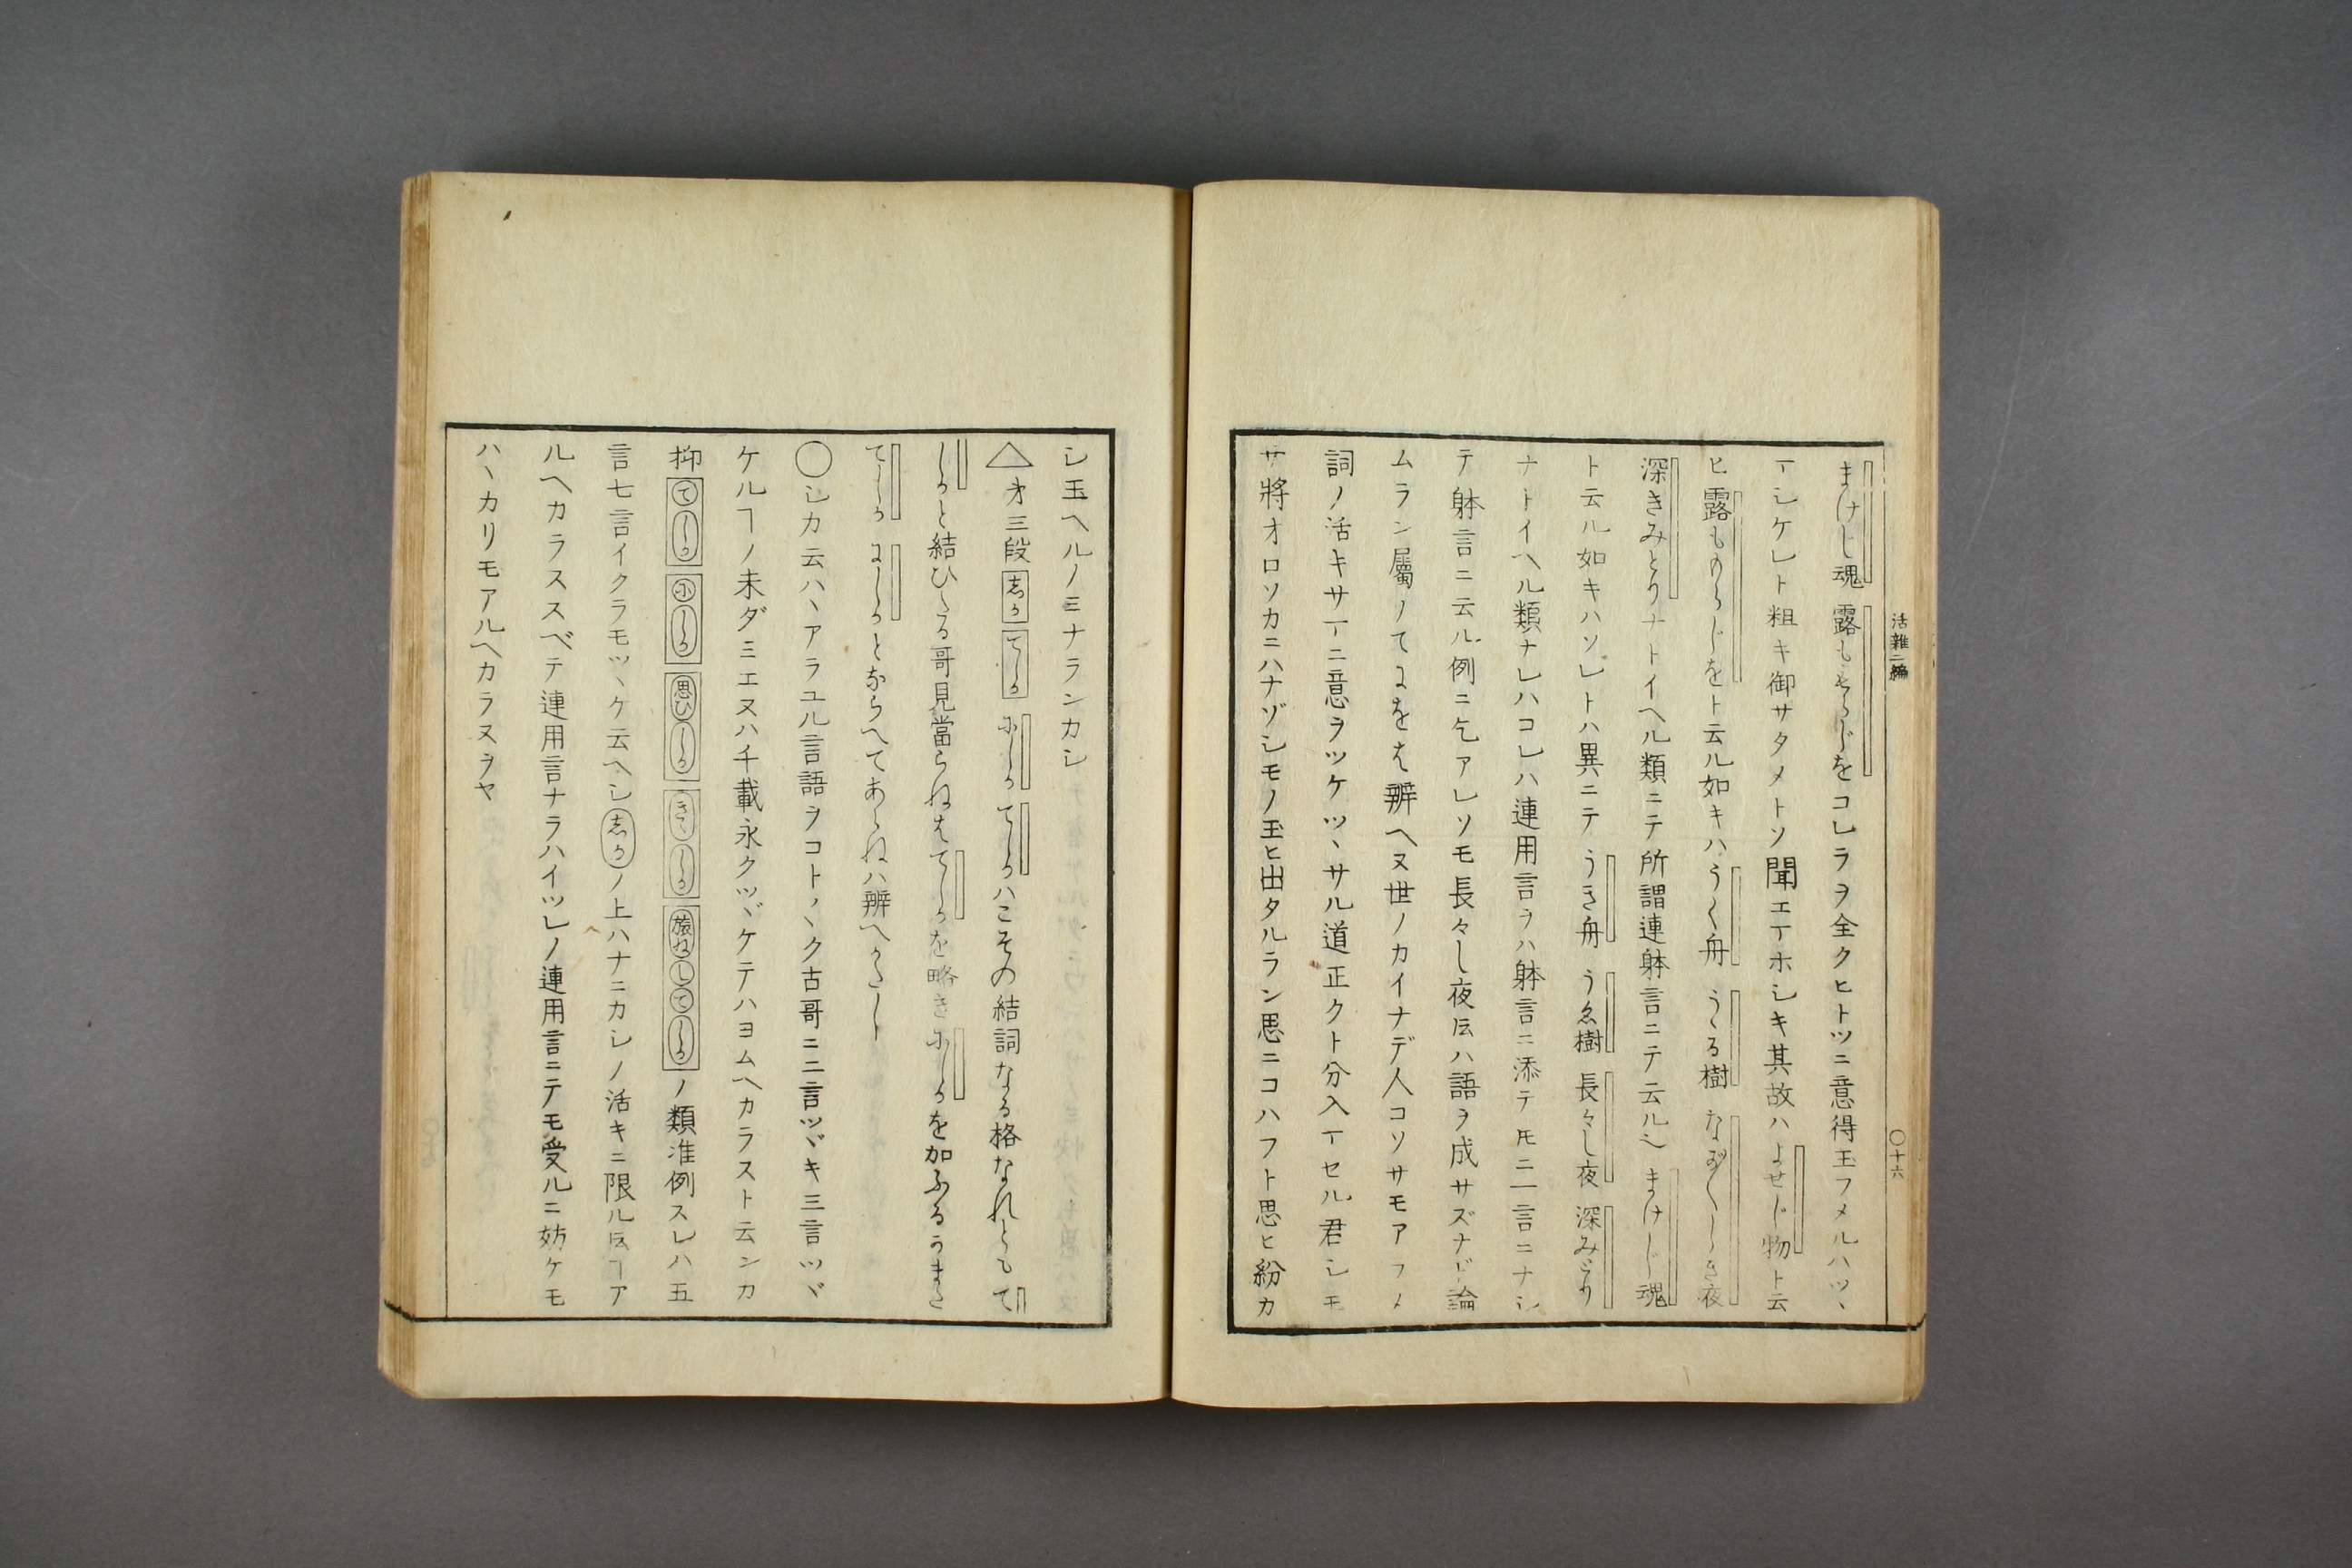 活雜二編
〇十六
まけじ魂露ももらじをコレラヲ全クヒトツニ意得玉フメルハツヽ
𪜈シケレト粗キ御サタメトソ聞エテホシキ其故ハよせじ物ト云
ヒ露ものらじをト云ル如キハうく舟うゝる樹なが〱しき夜
深きみとりナトイヘル類ニテ所謂連躰言ニテ云ルヘまけじ魂
ト云ル如キハソレトハ異ニテうき舟うゑ樹長々し夜深みどり
ナトイヘル類ナレハコレハ連用言ヲハ躰言ニ添テ𪜈ニ一言ニナシ
テ躰言ニ云ル例ニ乞アレソモ長々し夜𫝆ハ語ヲ成サズナド論
ムラン屬ノてにをは辨ヘヌ世ノカイナデ人コソサモアラメ
詞ノ活キサマニ意ヲツケツヽサル道正クト分入マセル君シモ
サ將オロソカニハナゾシモノ玉ヒ出タルラン思ニコハフト思ヒ紛カ
シ玉ヘルノミナランカシ
△才三段志うてしうにしうてしうハこその結詞なる格なれともて
しうと結ひたる哥見當らねはてしうを略きにしうを加ふるうまた
てしうにしうとならへてあらねハ辨へかたし
〇シカ云ハヽアラユル言語ヲコトヽヽク古哥ニ二言ツヾキ三言ツヾ
ケルヿノ未ダミエヌハ千載永クツヾケテハヨムヘカラスト云ンカ
抑てしうにしう思ひしうきゝしう旅ねしてしうノ類准例スレハ五
言七言イクラモツヽケ云ヘシ志うノ上ハナニカシノ活キニ限ル𫝆ヿア
ルヘカラススベテ連用言ナラハイツレノ連用言ニテモ受ルニ妨ケモ
ハヽカリモアルヘカラヌヲヤ